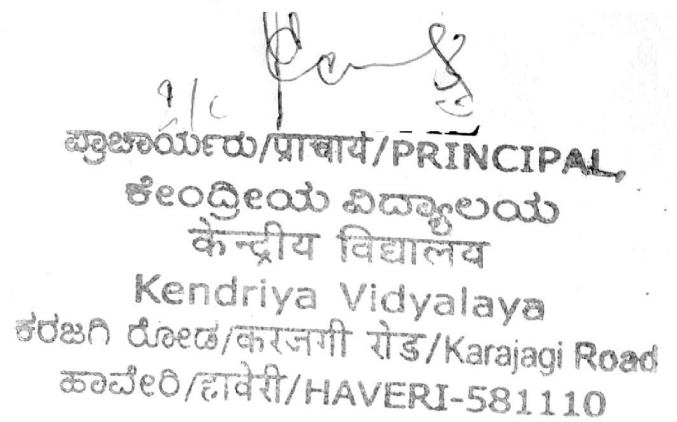 I/c
ಪ್ರಾಚಾರ್ಯರು/प्राचार्य/PRINCIPAL,
ಕೇಂದ್ರೀಯ ವಿದ್ಯಾಲಯ
केन्द्रीय विद्यालय
Kendriya Vidyalaya
ಕರಜಗಿ ರೋಡ/करजगी रोड/Karajagi Road
ಹಾವೇರಿ/हावेरी/HAVERI-581110